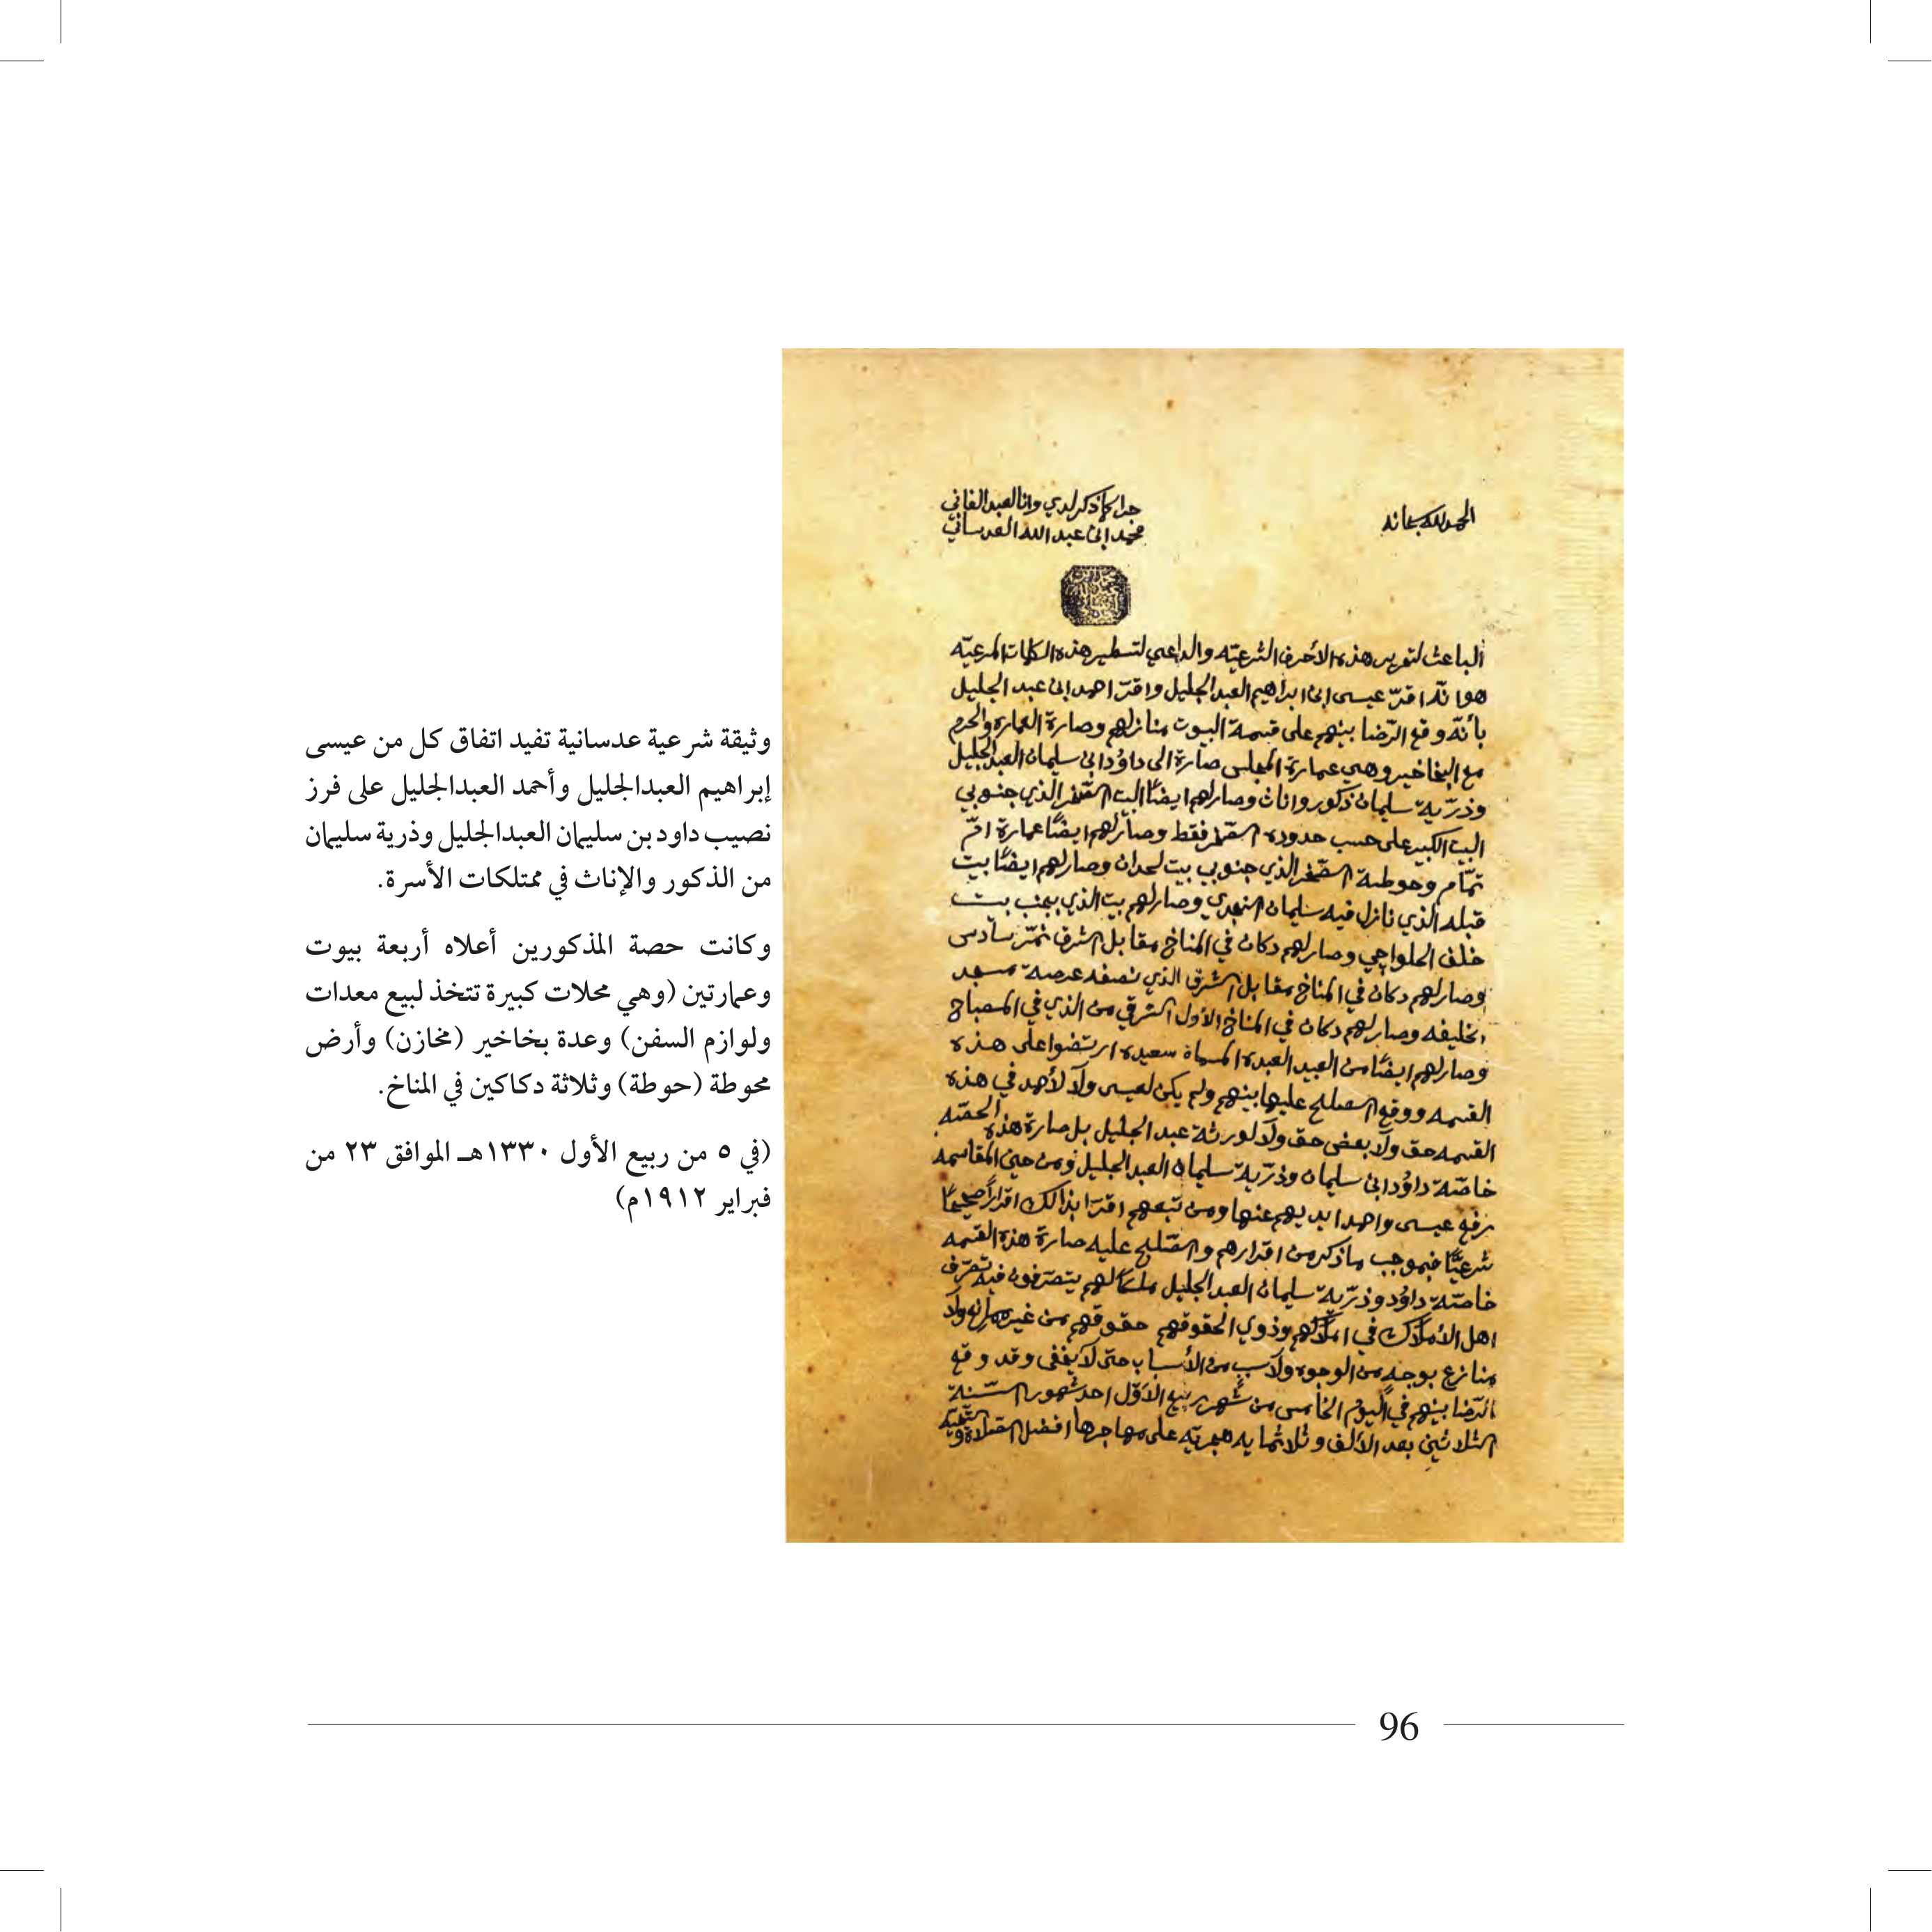 الحمد لله سبحانه
جرا كما ذكر لدي وانا العبد الفاني
محمد ابن عبد الله العدساني
الباعث لتحرير هذه الأحرف الشرعيّه والداعي لتسطير هذه الكلمات المرعيّه
هو انّه اقرّ عيسى ابن ابراهيم العبد الجليل واقرّ احمد ابن عبد الجليل
بأنّه وقع الرّضا بينهم على قسمة البيوت منازلهم وصارة العمارة والحرم
مع البخاخير وهي عمارة المجلس صارة الى داوُد ابن سليمان العبد الجليل
وذرّية سليمان ذكور واناث وصار لهم ايضًا البيت الصّغير الذي جنوبي
البيت الكبير على حسب حدوده الصّغير فقط وصار لهم ايضًا عمارة امّ
تمّام وحوطة الصّغير الذي جنوبي بيت لحدان وصار لهم ايضًا بيت
قبله الذي نازل فيه سليمان النجدي وصار لهم بيت الذي بجنب بيت
خلف الحلواجي وصار لهم دكان في المناخ مقابل الشرق نمّر سادس
وصار لهم دكان في المناخ مقابل الشرق الذي نصفه عرصة مسجد
الخليفه وصار لهم دكان في المناخ الأول الشرقي من الذي في المصباح
وصار لهم ايضًا من العبيد العبده المسماة سعيده ارتضوا على هذه
القسمه ووقع الصلح عليها بينهم ولم يكن لعيسى ولا لأحمد في هذه
القسمه حق ولا بعض حق ولا لورثة عبد الجليل بل صارة هذه الحصّه
خاصّة داوُد ابن سليمان وذرّية سليمان العبد الجليل ومن حين المقاسمه
رفع عيسى واحمد ايديهم عنها ومن تبعهم اقرّا بذالك اقرارًا صحيحًا
شرعيًّا فبموجب ماذكر من اقرارهم والصّلح عليه صارة هذه القسمه
خاصّة داوُد وذرّية سليمان العبد الجليل ملكًا لهم يتصرّفون فيه تصرّف
اهل الأملاك في املاكهم وذوي الحقوق في حقوقهم من غير معارض ولا
منازع بوجه من الوجوه ولا سبب من الأسباب حتى لا يخفى وقد وقع
الرّضا بينهم في اليوم الخامس من شهر ربيع الأوّل احد شهور السّنة
الثلاثين بعد الألف وثلاثمايه هجريّه على مهاجرها افضل الصّلاة والتحيّه
وثيقة شرعية عدسانية تفيد اتفاق كل من عيسى
إبراهيم العبدالجليل وأحمد العبدالجليل على فرز
نصيب داود بن سليمان العبدالجليل وذرية سليمان
من الذكور والإناث في ممتلكات الأسرة.
وكانت حصة المذكورين أعلاه أربعة بيوت
وعمارتين (وهي محلات كبيرة تتخذ لبيع معدات
ولوازم السفن) وعدة بخاخير (مخازن) وأرض
محوطة (حوطة) وثلاثة دكاكين في المناخ.
(في ٥ من ربيع الأول ١٣٣٠هـ الموافق ٢٣ من
فبراير ١٩١٢م)
96